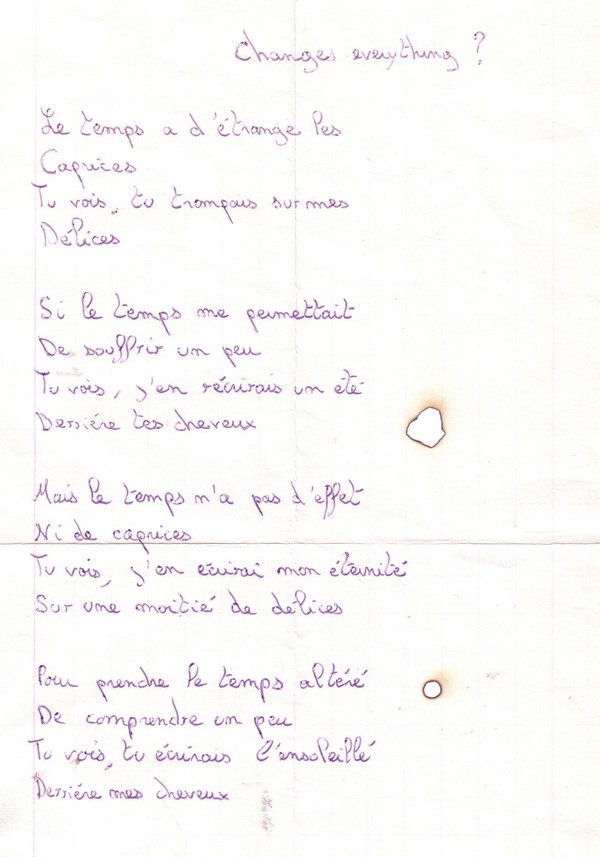 Changes everything ?
Le temps a d'étrange les
Caprices
Tu vois, tu trompais sur mes
Délices
Si le temps me permettait
De souffrir un peu
Tu vois, j'en réécrirais un été
Derriére tes cheveux
Mais le temps n'a pas d'effet
Ni de caprices
Tu vois, j'en écrirai mon éternité
Sur une moitié de délices
Pour prendre le temps altéré
De comprendre un peu
Tu vois, tu écrirais l'ensoleillé
Derriére mes cheveux